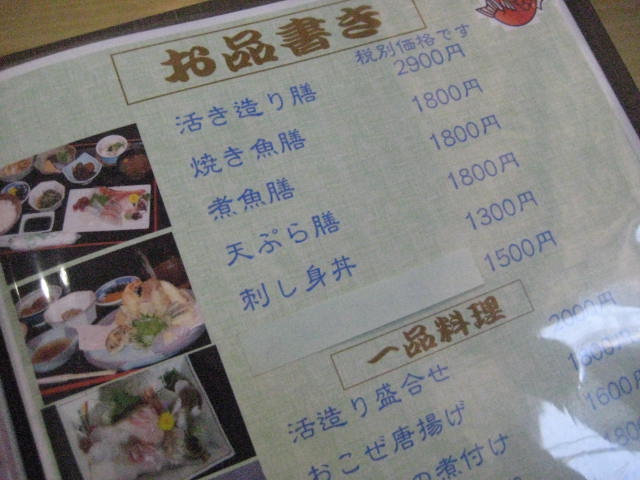 お品書き
税別価格です
活き造り膳 2900円
焼き魚膳 1800円
煮魚膳 1800円
天ぷら膳 1800円
刺し身丼 1300円
1500円
一品料理
活造り盛合せ 2000円
おこぜ唐揚げ
の煮付け 1600